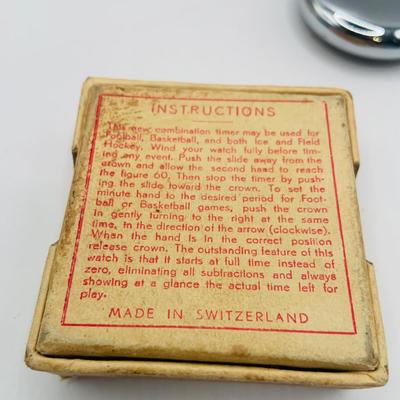 INSTRUCTIONS
This new combination timer may be used for
Football, Basketball, and both Ice and Field
Hockey. Wind your watch fully before tim-
ing any event. Push the slide away from the
crown and allow the second hand to reach
the figure 60. Then stop the timer by push-
ing the slide toward the crown. To set the
minute hand to the desired period for Foot-
ball or Basketball games, push the crown
in gently turning to the right at the same
time, in the direction of the arrow (clockwise).
When the hand is in the correct position
release crown. The outstanding feature of this
watch is that it starts at full time instead of
zero, eliminating all subtractions and always
showing at a glance the actual time left for
play.
MADE IN SWITZERLAND